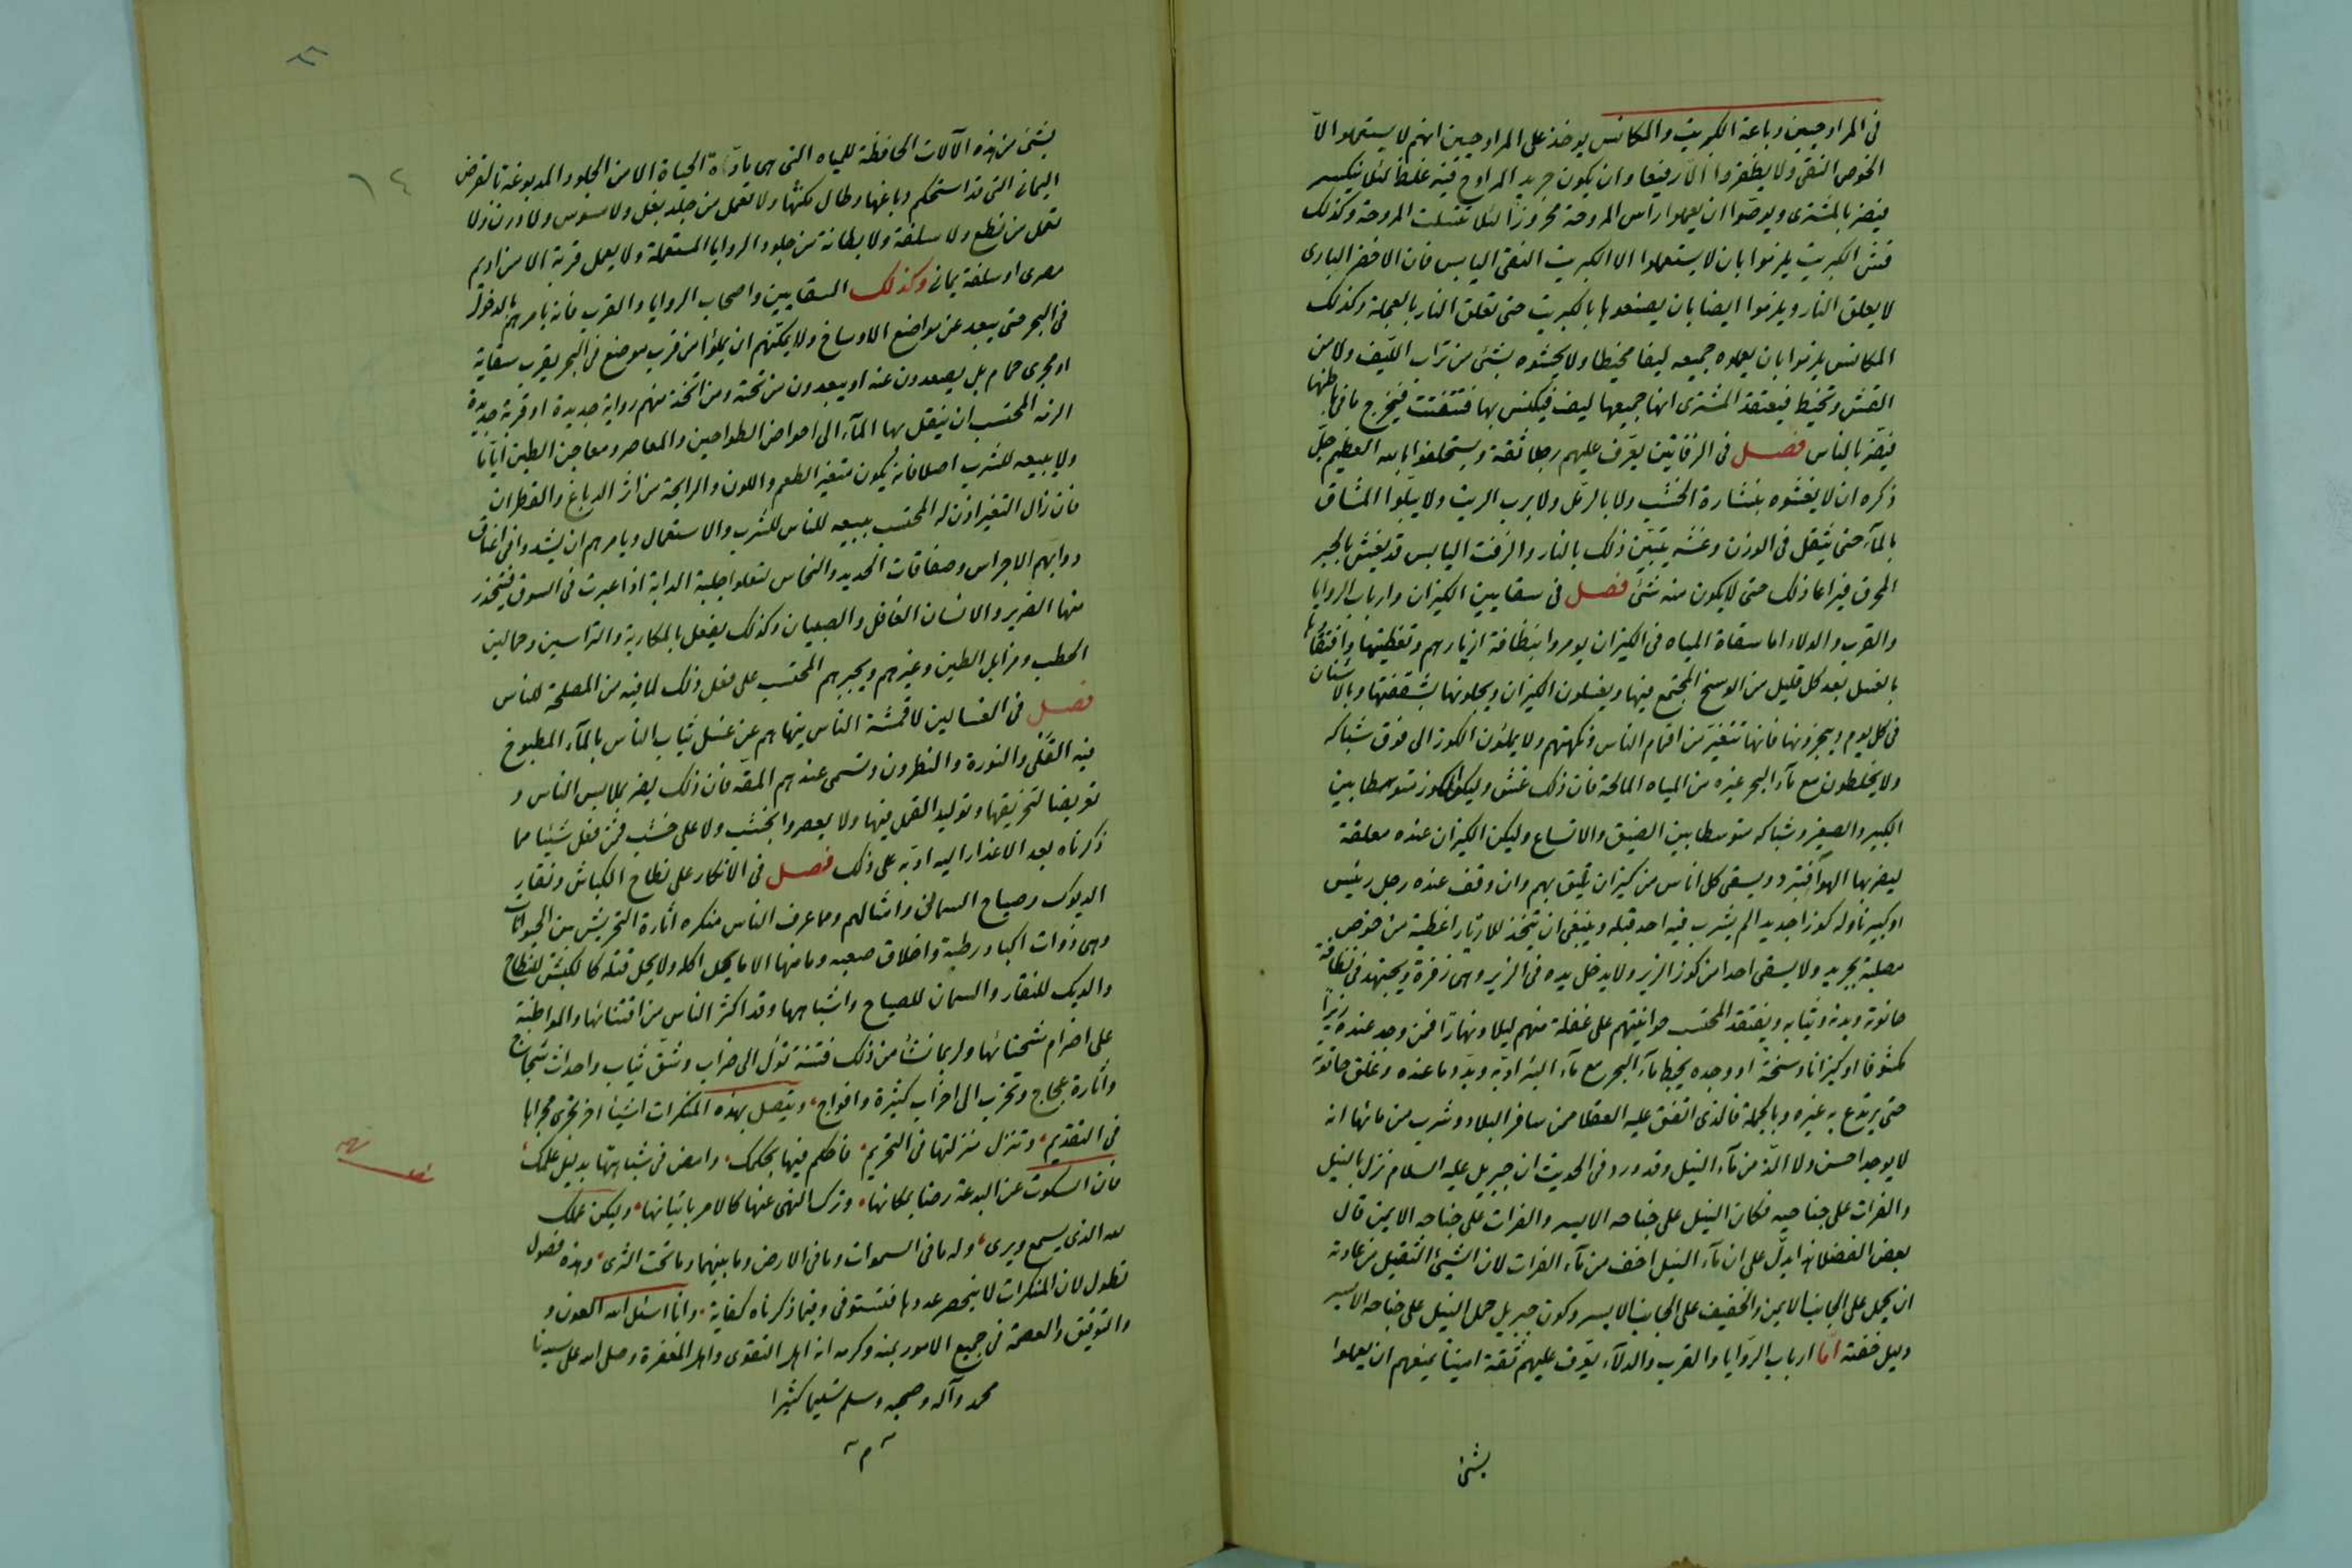 فى المراوحيين وباعة الكبريت والمكانس يوخذ على المراوحيين انهم لا يستعملوا الاّ
الخوص النقى ولا يظفروا الاّ رفيعا وان يكون جريد المراوح فيه غلظ لئلا ينكسر
فيضر بالمشترى ويوصّوا ان يعملوا راس المروحة مخروزاً لئلا تنسلت المروحة وكذلك
الكبريت يلزموا بان لا يستعملوا الا الكبريت النقى اليابس فان الاخضر البارى
لا يعلق النار ويلزموا ايضا بان يصنعوها بالكبريت حتى تعلق النار بالعجلة وكذلك
المكانس يلزموا بان يعملوه جميعه ليفا مخيطا ولا يحشوه بشئ من تراب اللّيف ولا من
القش وتخيط فيعتقد المشترى انها جميعها ليف فيكنس بها فتتفتت فيخرج ما فى باطنها
فيضرّ بالناس فصل فى الزفاتين يعرّف عليهم رجلا ثقة ويستحلفوا بالله العظيم جلّ
ذكره ان لا يغشوه بنشارة الخشب ولا بالرمّل ولا برب الزيت ولا يبلّوا المشاق
بالمآء حتى يثقل فى الوزن وغشه يتبيّن ذلك بالنار والزفت اليابس قد يغش بالجير
المحرق فيراعا ذلك حتى لا يكون منه شئ فصل فى سقايين الكيزان وارباب الروايا
والقرب والدلاء اما سقاة المياه فى الكيزان يومروا بنظافة ازيارهم وتغطيتها وافتقادها
بالغسل بعد كل قليل من الوسخ المجتمع فيها ويغسلون الكيزان ويجلونها بشقفتها وبالاشنان
فى كل يوم ويبخرونها فانها تتغيّر من افمام الناس ونكهتهم ولا يملئون الكوز الى فوق شباكه
ولا يخلطون مع مآء البحر غيره من المياه المالحة فان ذلك غش وليكن الكوز متوسطا بين
الكبير والصغير وشباكه متوسطا بين الضيق والاتساع وليكن الكيزان عنده معلقة
ليضربها الهوآء فتبرد ويسقى كل اناس من كيزان تليق بهم وان وقف عنده رجل رئيس
او كبير ناوله كوزا جديدا لم يشرب فيه احد قبله وينبغى ان يتخذ للازيار اغطية من خوص
مصلبة بجريد ولا يسقى احدا من كوز الزير ولا يدخل يده فى الزير وهى زفرة ويجتهد فى نظافة
حانوته وبدنه وثيابه ويفتقد المحتسب حوانيتهم على غفلة منهم ليلا ونهارا فمن وجد عنده زيراً
مكشوفا او كيزانا وسخة او وجده يخلط مآء البحر مع مآء البئر ادبه وبدّد ما عنده وغلق حانوته
حتى يرتدع به غيره وبالجملة فالذى اتفق عليه العقلا ممن سافر البلاد وشرب من مائها انه
لا يوجد احسن ولا الذّ من مآء النيل وقد ورد فى الحديث ان جبريل عليه السلام نزل بالنيل
والفرات على جناحيه فكان النيل على جناحه الايسر والفرات على جناحه الايمن قال
بعض الفضلا هذا يدلّ على ان مآء النيل اخف من مآء الفرات لان الشيئ الثقيل من عادته
ان يحمل على الجانب الايمن والخفيف على الجانب الايسر وكون جبريل حمل النيل على جناحه الايسر
دليل خفته امّا ارباب الرّوايا والقرب والدلآء يعرّف عليهم ثقة امينا يمنعهم ان يعملوا
بشئ
بشئ من هذه الآلات الحافظة للمياه التى هى مادّة الحياة الا من الجلود المدبوغة بالقرض
اليمانى التى قد استحكم دباغها وطال مكثها ولا تعمل من جلد بغل ولا مسوس ولا ودرن ولا
تعمل من نطع ولا سلفة ولا بطانة من جلود الروايا المستعملة ولا يعمل قربة الا من اديم
مصرى او سلفة يمانى وكذلك السقايين واصحاب الروايا والقرب فانه يامرهم بالدخول
فى البحر حتى يبعد عن مواضع الاوساخ ولا يمكنهم ان يملؤا من قرب موضع فى البحر بقرب سقاية
او مجرى حمام بل يصعدون عنه او يبعدون من تحته ومن اتخذ منهم رواية جديدة او قربة جديدة
الزمه المحتسب ان ينقل بها المآء الى احواض الطواحين والمعاصر ومعاجن الطين ايّاما
ولا يبيعه للشرب اصلا فانه يكون متغير الطعم واللون والرايحة من اثر الدباغ والقطران
فان زال التغير اذن له المحتسب ببيعه للناس للشرب والاستعمال ويامرهم ان يشدوا فى اعناق
دوابهم الاجراس وصفاقات الحديد والنحاس لتعلوا جلبة الدابة اذا عبرت فى السوق فيتحذر
منها الضرير والانسان الغافل والصبيان وكذلك يفعل بالمكارية والتراسين وحمالين
الحطب ومزابل الطين وغيرهم ويجبرهم المحتسب على فعل ذلك لما فيه من المصلحة للناس
فصل فى الغسالين لاقمشة الناس ينهاهم عن غسل ثياب الناس بالمآء المطبوخ
فيه القلى والنورة والنطرون وتسمى عندهم المقه فان ذلك يضر بملابس الناس و
تعريضا لتخزيقها وتوليد القمل فيها ولا يعصروا بخشب ولا على خشب فمن فعل شيئا مما
ذكرناه بعد الاعذار اليه ادبه على ذلك فصل فى الانكار على نطاح الكباش ونقار
الديوك وصياح السمانى وامثالهم ومما عرف الناس منكره اثارة التحريش بين الحيوانات
وهى ذوات اكباد رطبة واخلاق صعبه وما منها الا ما يحل اكله ولا يحل قتله كالكبش للنطاح
والديك للنقار والسمان للصياح واشباهها وقد اكثر الناس من اقتنائها والمواظبة
على اضرام شحنائها ولربما نشأ من ذلك فتنة تؤل الى ضراب وشقّ ثياب واحداث شجاج
واثارة عجاج وتحزب الى احزاب كثيرة وافواج، ويتصل بهذه المنكرات اشيئا اخر تجرى مجراها
فى التقديم، وتنزل منزلتها فى التحريم، فاحكم فيها بحكمك، وامض فى شبهاتها بدليل علمك،
فان السكوت عن البدعة رضا بمكانها، وترك النهى عنها كالامر باتيانها، وليكن عملك
لله الذى يسمع ويرى، وله ما فى السموات وما فى الارض وما بينهما وما تحت الثرى، وهذه فصول
تطول لان المنكرات لا ينحصر عددها فتستوفى وفيما ذكرناه كفاية، وانا اسئل الله العون و
والتوفيق والعصمة فى جميع الامور بمنه وكرمه انه اهل التقوى واهل المغفرة وصل الله على سيدنا
محمد وآله وصحبه وسلم تسليما كثيرا
م